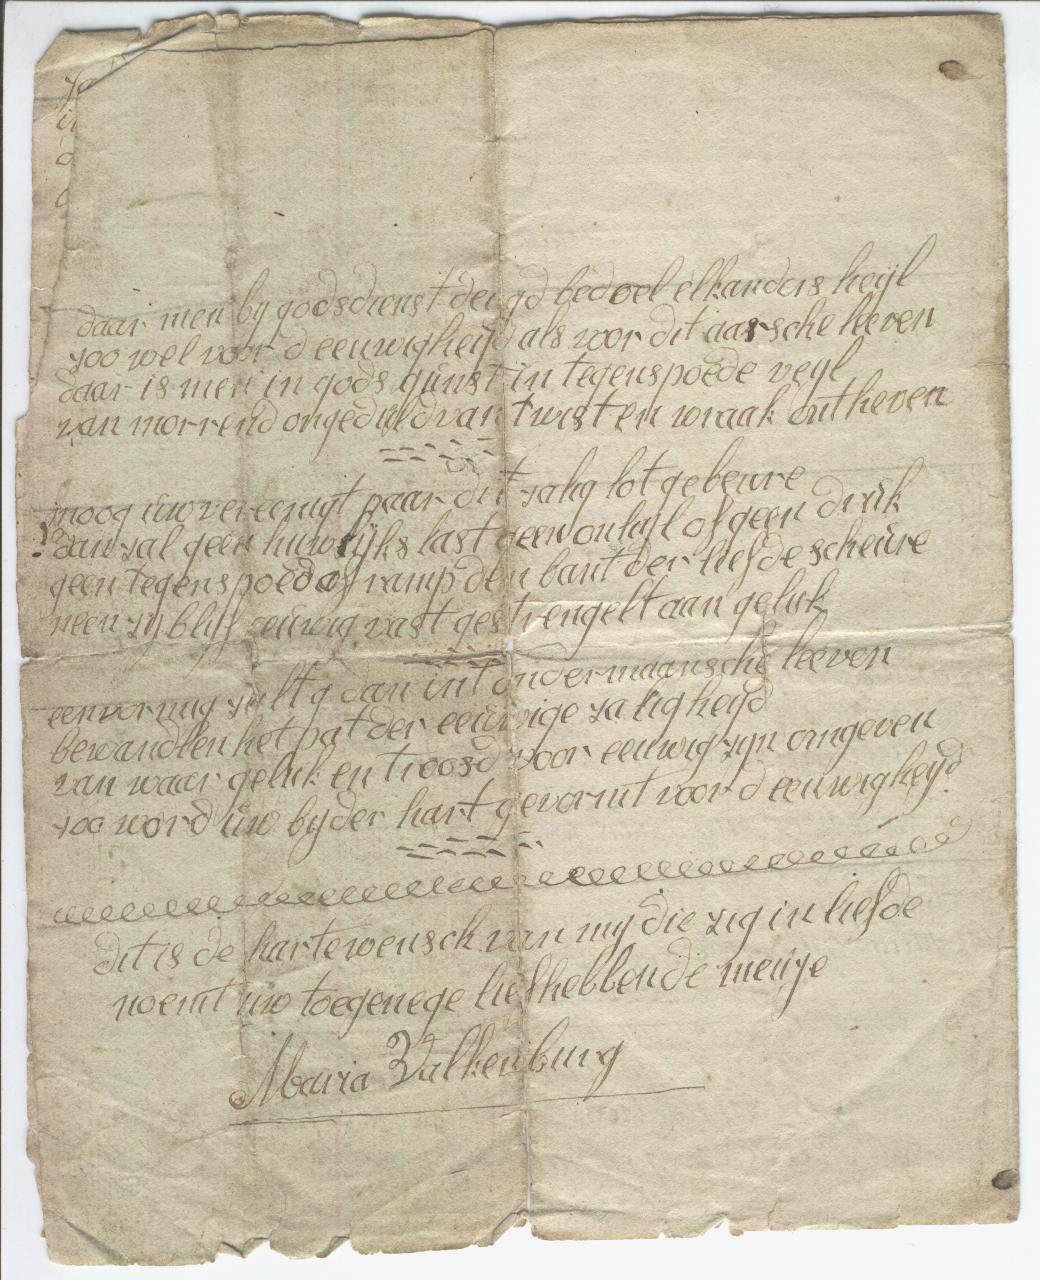 daar men by godsdienst deugd bedoel elkanders heijl
zoo wel voor d eeuwigheijd als voor dit aarsche leeven
daar is men in gods gunst in tegenspoede veyl
van morrend ongeduld van twist en wraak ontheven
moog uw vereenigt paar dit zalig lot gebeure
dan zal geen huwlijks last geen onheyl of geen druk
geen tegenspoed of ramp den bant der liefde scheure
neen zy blijf eeuwig vast gestrengelt aan geluk
eenvormig zult g dan int ondermaansche leeven
bewandlen het pat der eeuwige zaligheyd
van waar geluk en troosd voor eeuwig zyn omgeven
zoo word uw byder hart gevormt voor d eeuwigheyd.
dit is de hartewensch van my die zig in liefde
noemt uw toegenege liefhebbende
Maria Valkenburg